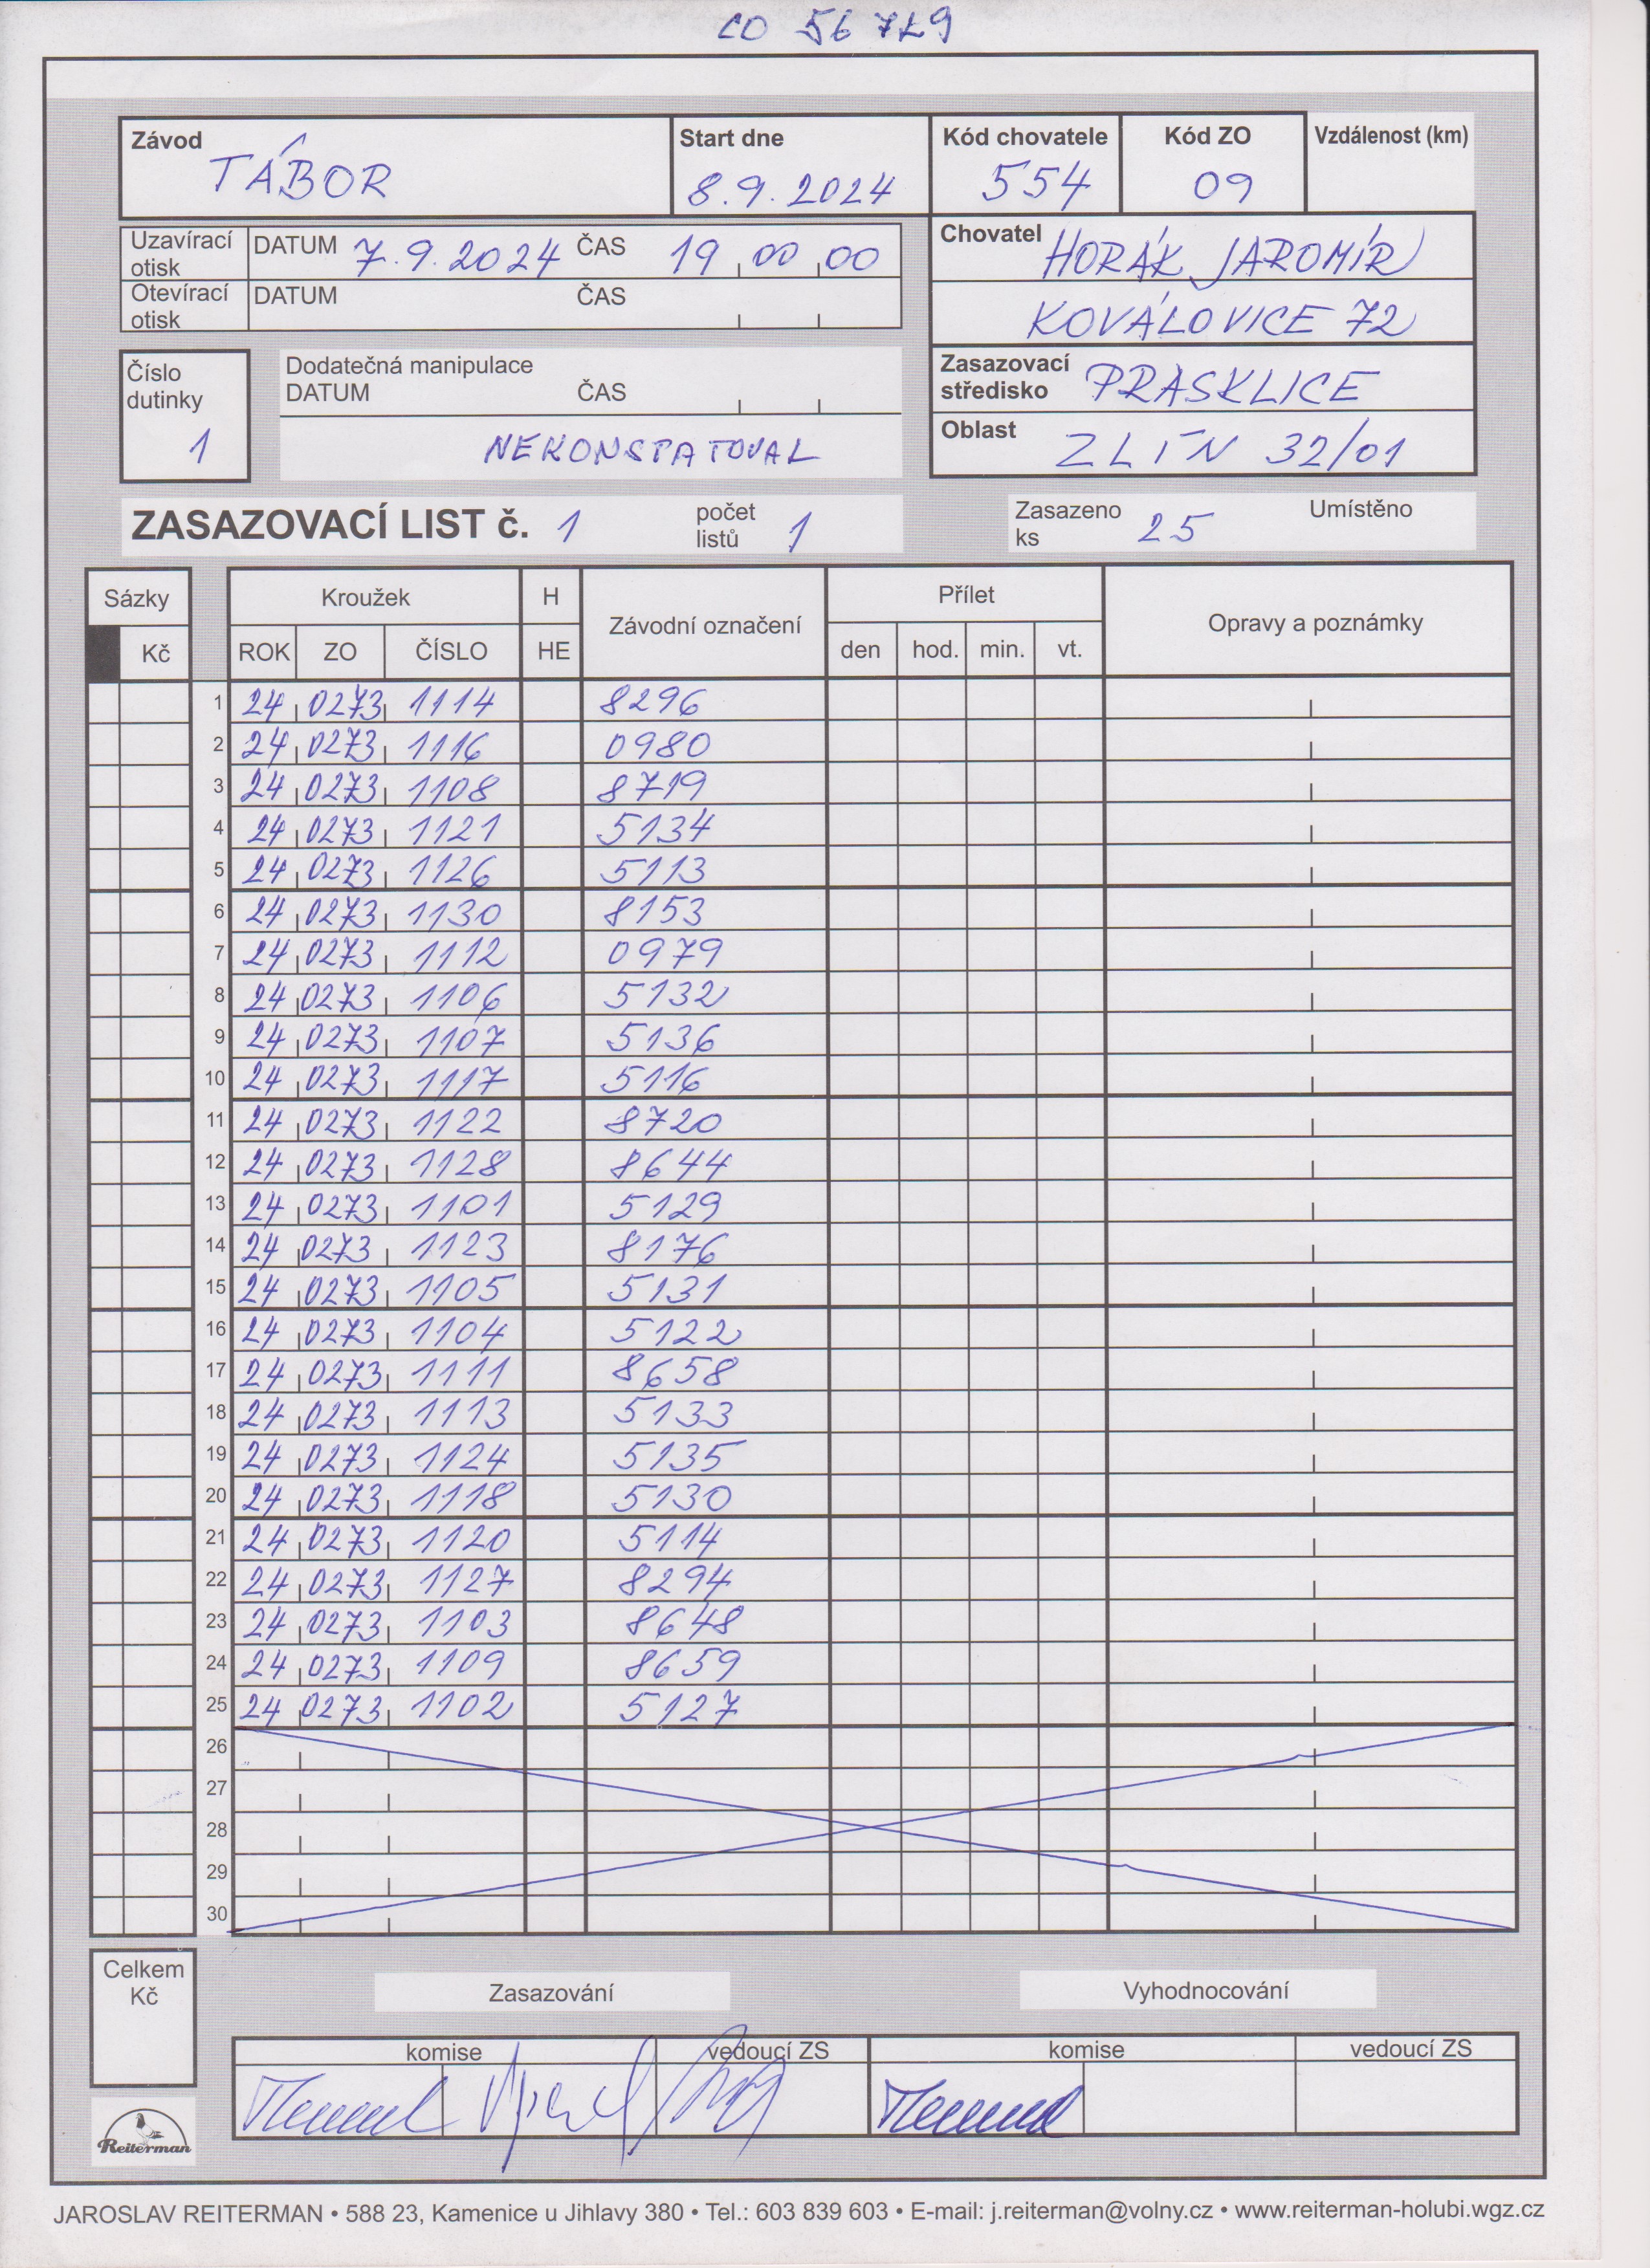 CO 56 729
Závod Start dne Kód chovatele Kód ZO Vzdálenost (km)
TÁBOR 8.9.2024 554 09
Uzavírací otisk DATUM 7.9.2024 ČAS 19 00 00
Chovatel HORÁK JAROMÍR
Otevírací otisk DATUM ČAS
KOVÁLOVICE 72
Číslo dutinky 1
Dodatečná manipulace
DATUM ČAS
Zasazovací středisko PRASKLICE
NEKONSTATOVAL
Oblast ZLÍN 32/01
ZASAZOVACÍ LIST č. 1 počet listů 1 Zasazeno ks 25 Umístěno
Sázky Kroužek H Závodní označení Přílet Opravy a poznámky
Kč ROK ZO ČÍSLO HE den hod. min. vt.
1 24 0273 1114 8296
2 24 0273 1116 0980
3 24 0273 1108 8719
4 24 0273 1121 5134
5 24 0273 1126 5113
6 24 0273 1130 8153
7 24 0273 1112 0979
8 24 0273 1106 5132
9 24 0273 1107 5136
10 24 0273 1117 5116
11 24 0273 1122 8720
12 24 0273 1128 8644
13 24 0273 1101 5129
14 24 0273 1123 8176
15 24 0273 1105 5131
16 24 0273 1104 5122
17 24 0273 1111 8658
18 24 0273 1113 5133
19 24 0273 1124 5135
20 24 0273 1118 5130
21 24 0273 1120 5114
22 24 0273 1127 8294
23 24 0273 1103 8648
24 24 0273 1109 8659
25 24 0273 1102 5127
26
27
28
29
30
Celkem Kč
Zasazování Vyhodnocování
komise vedoucí ZS komise vedoucí ZS
Reiterman
JAROSLAV REITERMAN • 588 23, Kamenice u Jihlavy 380 • Tel.: 603 839 603 • E-mail: j.reiterman@volny.cz • www.reiterman-holubi.wgz.cz